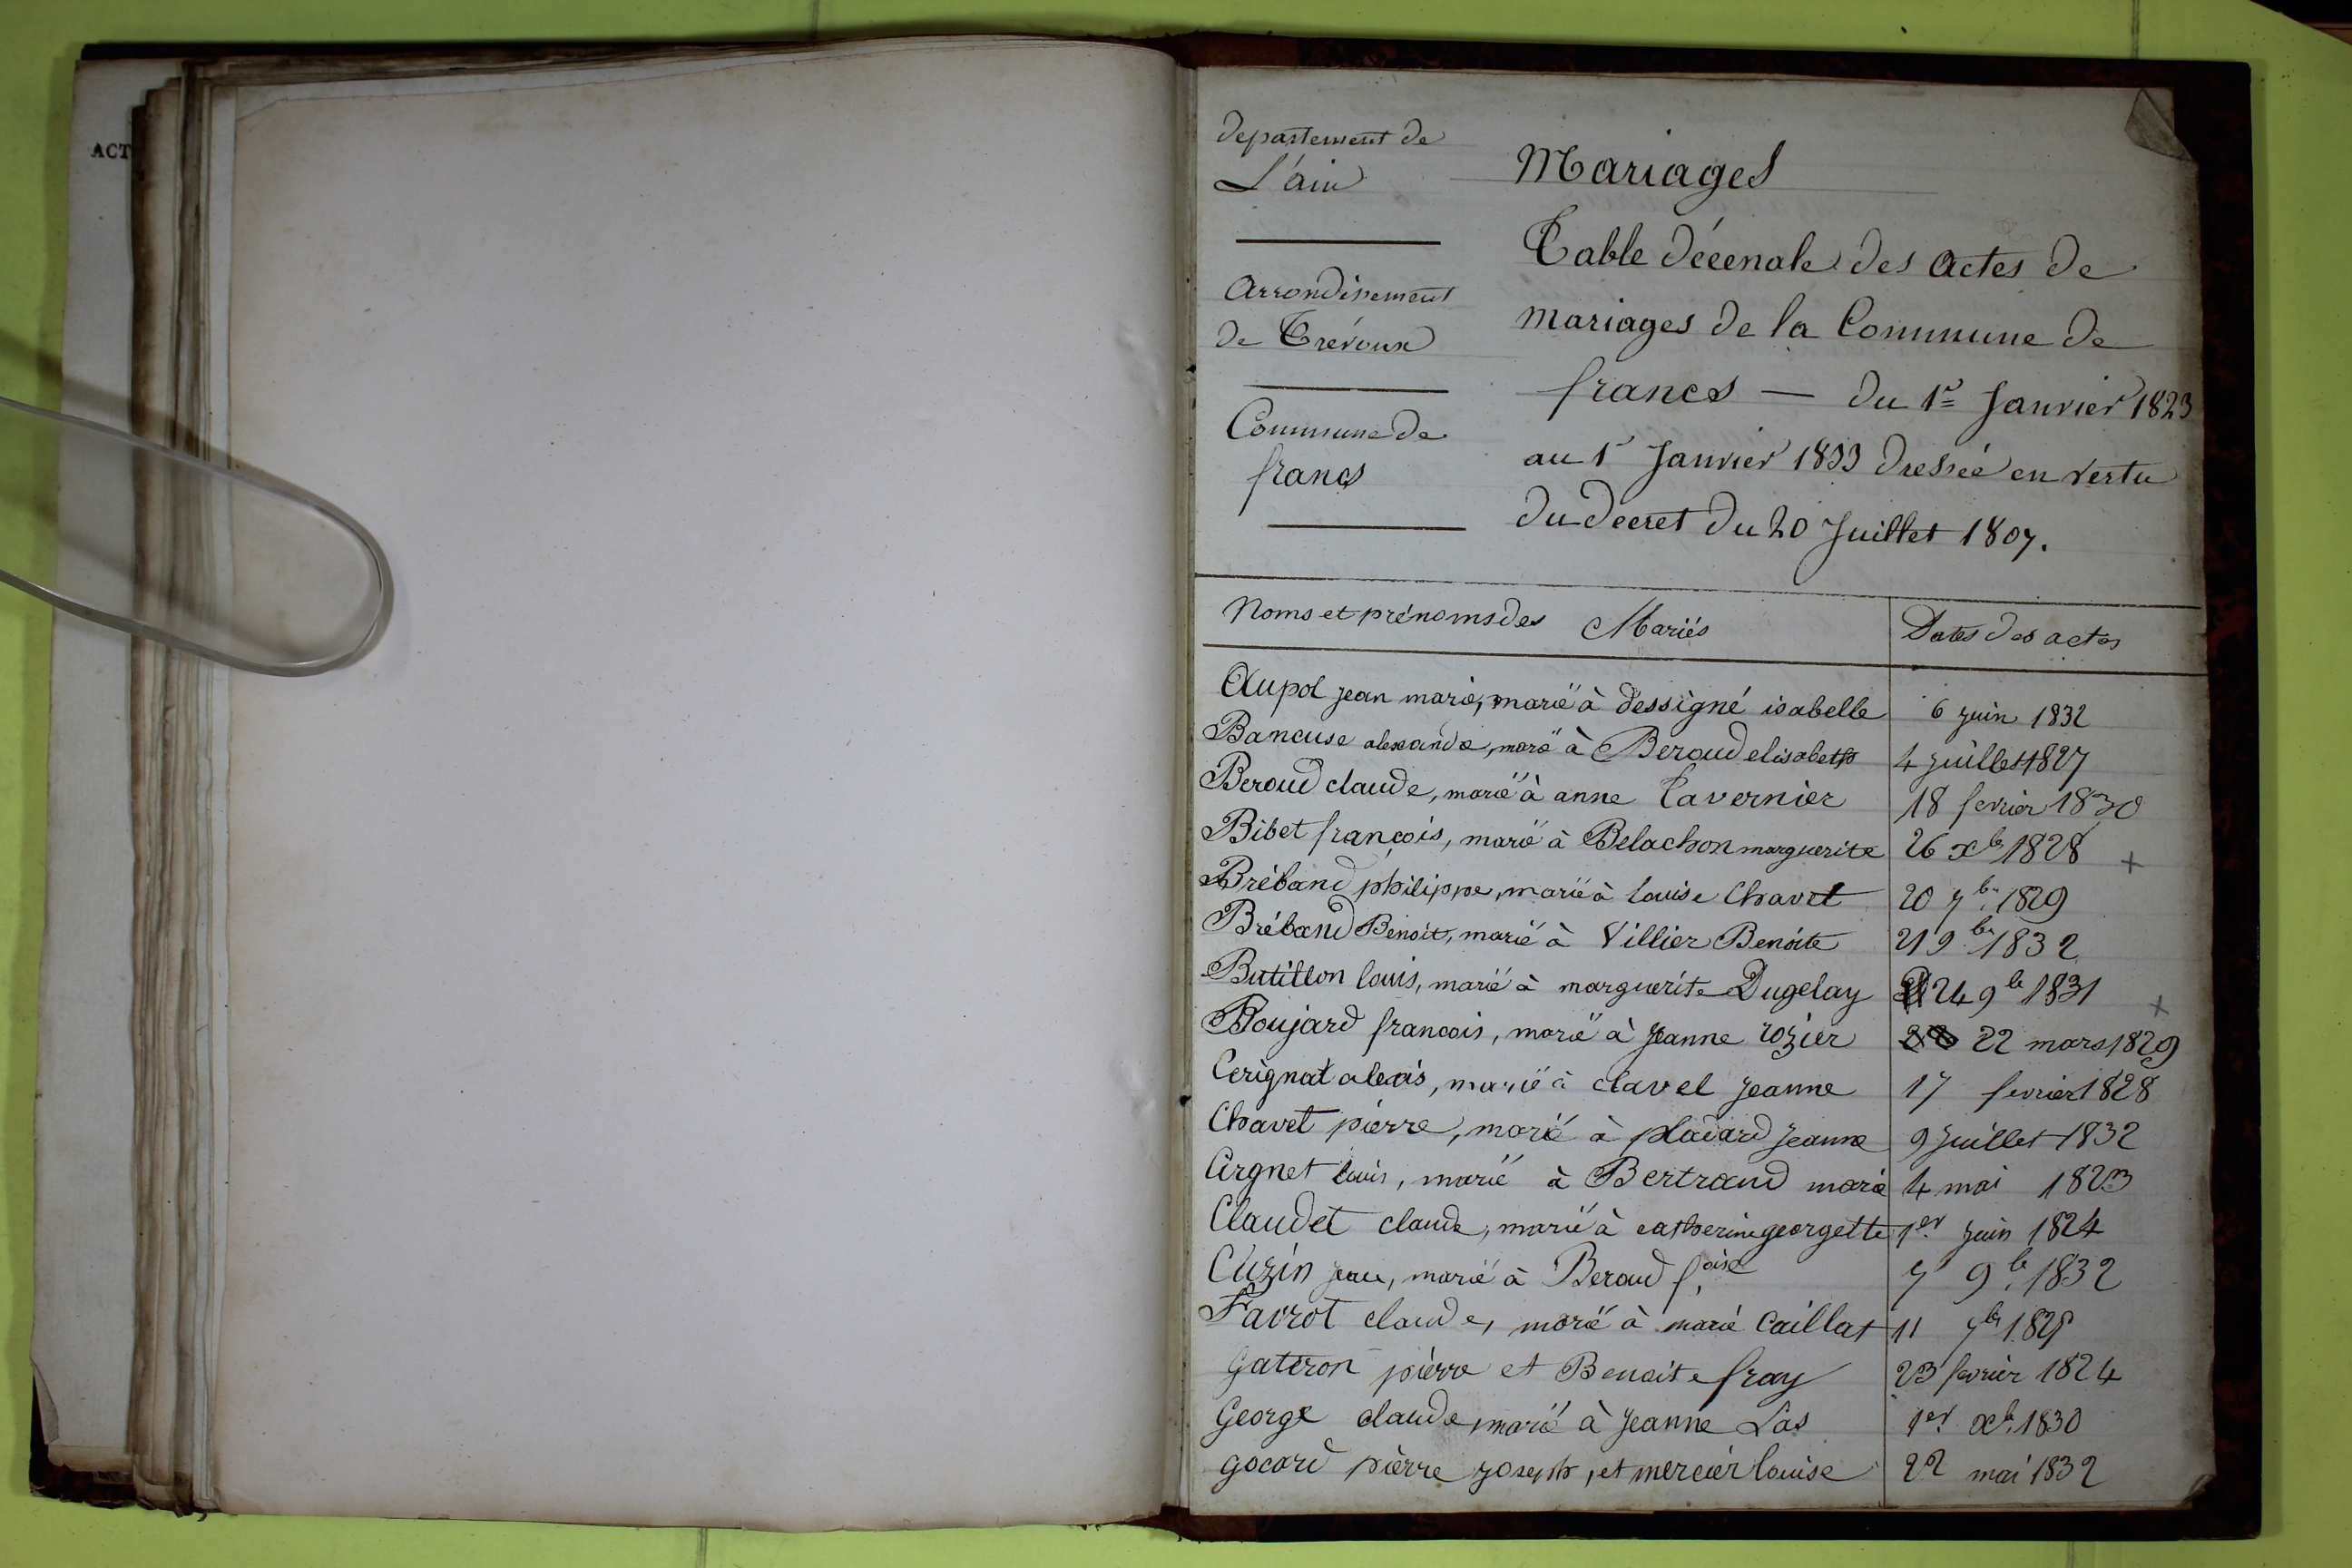 ACT
departement de
L'ain
arrondisement
de Trévoux
Commune de
francs
Mariages
Table décenale des actes de
mariages de la Commune de
francs — du 1er Janvier 1823
au 1r Janvier 1833 dressée en vertu
du decret du 20 Juillet 1807.
Noms et prénoms des Mariés Dates des actes
Aupol jean marie, marié à dessigné isabelle 6 juin 1832
Bancuse alexandre, marié à Beroud elisabeth 4 juillet 1827
Beroud claude, marié à anne Tavernier 18 fevrier 1830
Bibet françois, marié à Belachon marguerite 26 xbr 1828 +
Bréband philippe, marié à louise Chavet 20 7br 1829
Bréband Benoit, marié à Villier Benoite 21 9br 1832
Butillon louis, marié à marguerite Dugelay 24 9br 1831 +
Boujard francois, marié à Jeanne rozier 22 mars 1829
Cerignat alexis, marié à clavel jeanne 17 fevrier 1828
Chavet pierre, marié à pladard jeanne 9 Juillet 1832
Cirgnet louis, marié à Bertrand marie 4 mai 1823
Claudet claude, marié à catherine georgette 1er juin 1824
Cuzin jean, marié à Beroud f.oise 7 9br 1832
Favrot claude, marié à marie Caillat 11 7br
Gateron pierre et Benoite fray 23 fevrier 1824
George claude, marié à Jeanne Las 1er xbr 1830
gocard pierre joseph, et mercier louise 22 mai 1832